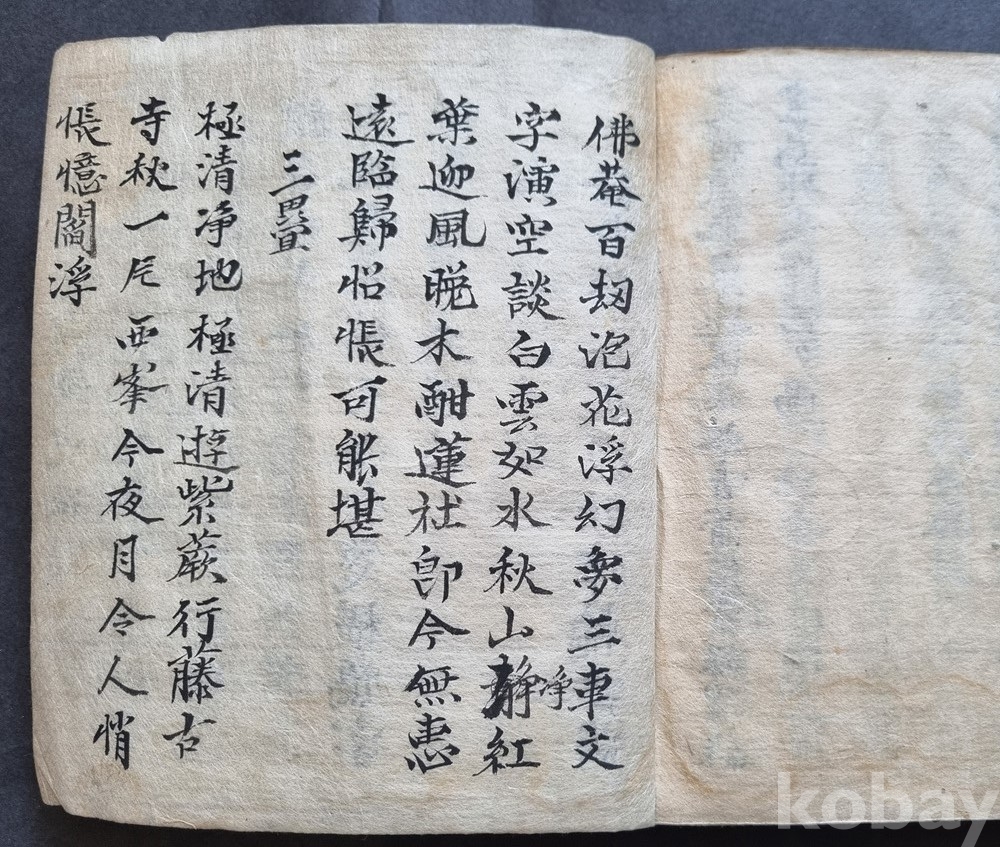 佛菴百刼泡花浮幻夢三車文
字演空談白雲如水秋山靜紅
淨
葉迎風晩木酣蓮社卽今無惠
遠臨歸怊悵可能堪
三疊
極清净地極清遊紫蕨行藤古
寺秋一尺西峯今夜月令人悄
悵憶閻浮
kobay